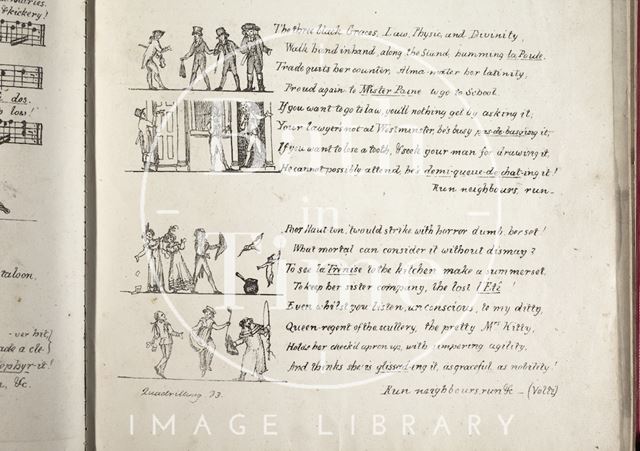 &kickery!
dos.
taloon,
ade a clé.
ephyr-it!
&c.
The three black Graces, Law, Physic, and Divinity,
Walk hand in hand, along the Strand, humming la Poule.
Trade quits her counter, Alma-mater her latinity,
Proud again to Mister Paine to go to School.
If you want to go to law, you'll nothing get by asking it;
Your Lawyer's not at Westminster, he's busy pas-de-basqing it;
If you want to lose a tooth, & seek your man for drawing it,
He cannot possibly attend, he's demi-queue-de-chat-ing it!
Run neighbours, run_
Poor Haut ton, 'twould strike with horror dumb, her set!
What mortal can consider it without dismay?
To see la Trénise to the kitchen make a summerset,
To keep her sister company, the lost l'Eté!
Even whilst you listen, unconscious, to my ditty,
Queen regent of the scullery, the pretty Mrs Kitty,
Holds her check'd apron up, with simpering agility,
And thinks she is glissad-ing it, as graceful as nobility!
Run neighbours, run &c _ (Volti)
Quadrilling 33.
Bath in Time
IMAGE LIBRARY